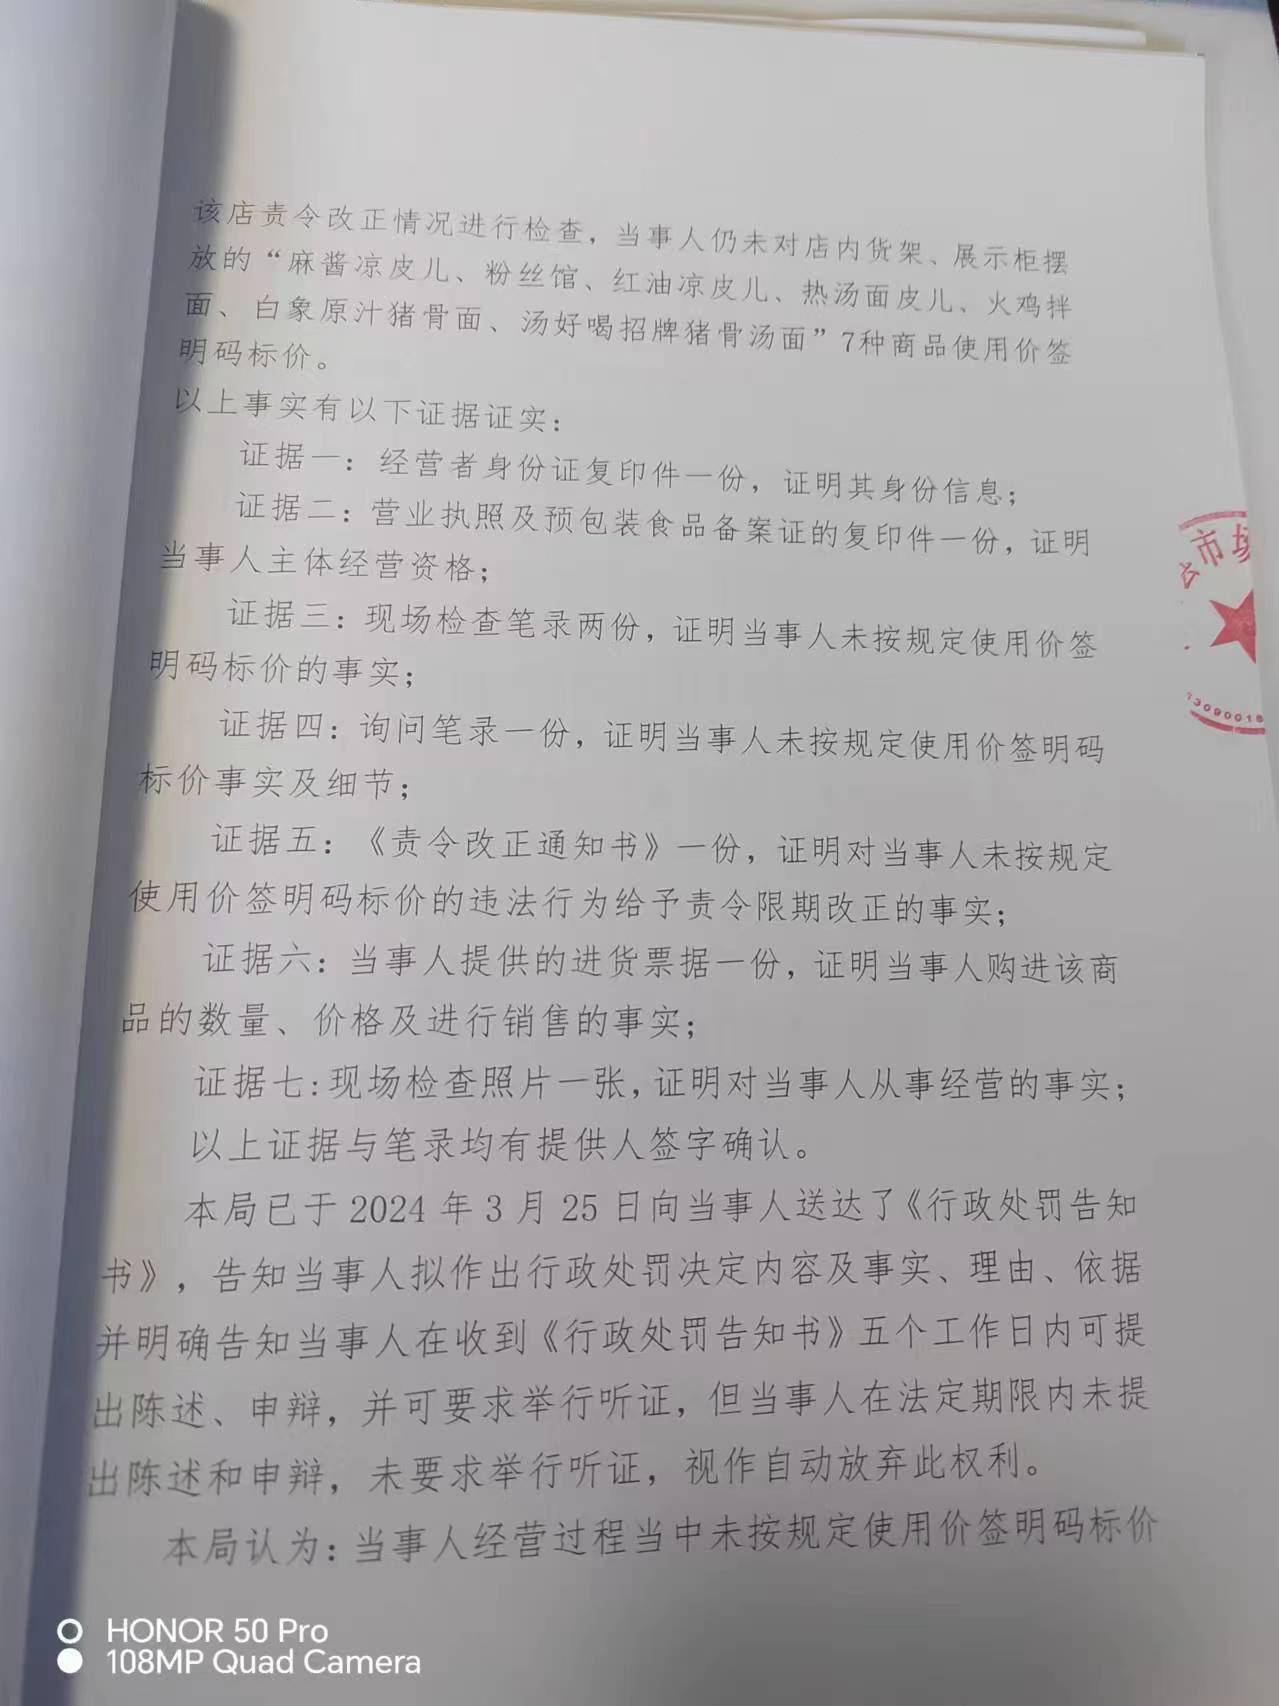 该店责令改正情况进行检查，当事人仍未对店内货架、展示柜摆
放的“麻酱凉皮儿、粉丝馆、红油凉皮儿、热汤面皮儿、火鸡拌
面、白象原汁猪骨面、汤好喝招牌猪骨汤面”7种商品使用价签
明码标价。
以上事实有以下证据证实：
证据一：经营者身份证复印件一份，证明其身份信息；
证据二：营业执照及预包装食品备案证的复印件一份，证明
当事人主体经营资格；
证据三：现场检查笔录两份，证明当事人未按规定使用价签
明码标价的事实；
证据四：询问笔录一份，证明当事人未按规定使用价签明码
标价事实及细节；
证据五：《责令改正通知书》一份，证明对当事人未按规定
使用价签明码标价的违法行为给予责令限期改正的事实；
证据六：当事人提供的进货票据一份，证明当事人购进该商
品的数量、价格及进行销售的事实；
证据七：现场检查照片一张，证明对当事人从事经营的事实；
以上证据与笔录均有提供人签字确认。
本局已于 2024 年 3 月 25 日向当事人送达了《行政处罚告知
书》，告知当事人拟作出行政处罚决定内容及事实、理由、依据
并明确告知当事人在收到《行政处罚告知书》五个工作日内可提
出陈述、申辩，并可要求举行听证，但当事人在法定期限内未提
出陈述和申辩，未要求举行听证，视作自动放弃此权利。
本局认为：当事人经营过程当中未按规定使用价签明码标价
市场
3090018
HONOR 50 Pro
108MP Quad Camera